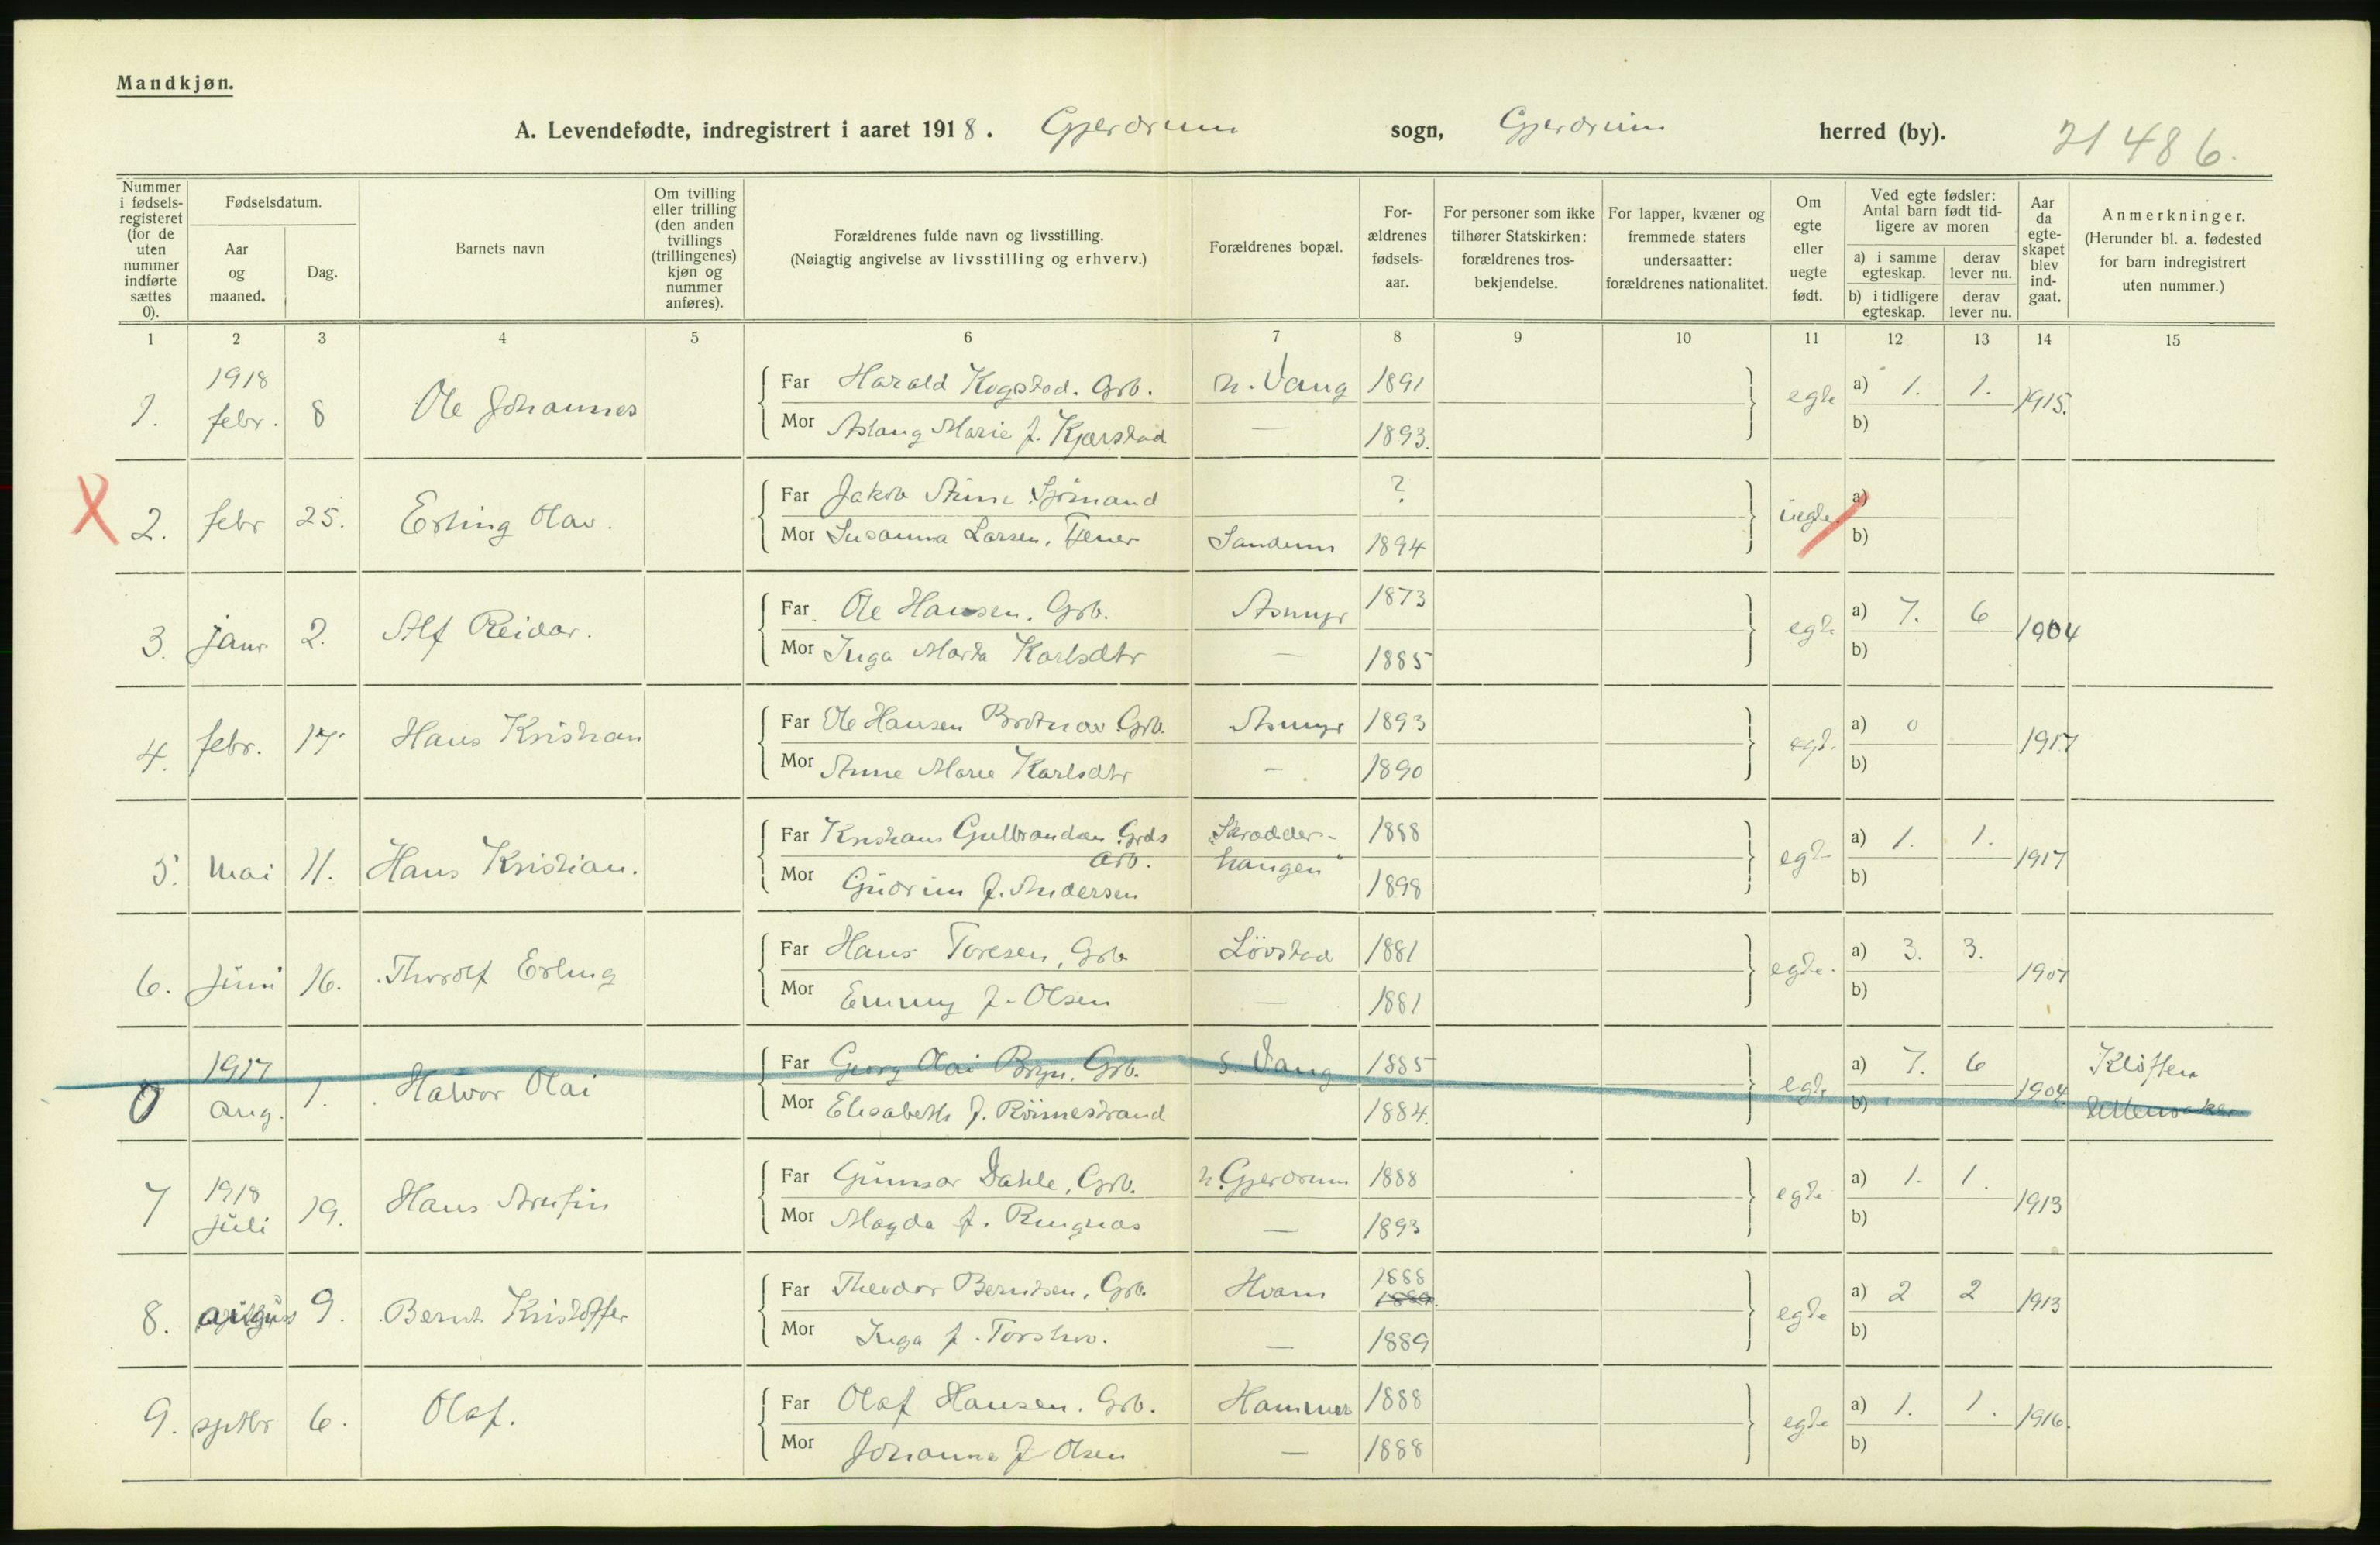 Mandkjøn.
A. Levendefødte, indregistrert i aaret 1918. Gjerdrum sogn, Gjerdrum herred (by). 21486.
Nummer i fødsels-registeret (for de uten nummer indførte sættes 0).
Fødselsdatum.
Aar og maaned.
Dag.
Barnets navn
Om tvilling eller trilling (den anden tvillings (trillingenes) kjøn og nummer anføres).
Forældrenes fulde navn og livsstilling.
(Nøiagtig angivelse av livsstilling og erhverv.)
Forældrenes bopæl.
For-ældrenes fødsels-aar.
For personer som ikke tilhører Statskirken: forældrenes tros-bekjendelse.
For lapper, kvæner og fremmede staters undersaatter: forældrenes nationalitet.
Om egte eller uegte født.
Ved egte fødsler: Antal barn født tid-ligere av moren
a) i samme egteskap.
derav lever nu.
b) i tidligere egteskap.
derav lever nu.
Aar da egte-skapet blev ind-gaat.
Anmerkninger.
(Herunder bl. a. fødested for barn indregistrert uten nummer.)
1 2 3 4 5 6 7 8 9 10 11 12 13 14 15
1. 1918 febr. 8 Ole Johannes
Far Harald Kogstad. Grb. n. Vang 1891 egte a) 1. 1. 1915.
Mor Aslaug Marie f. Kjærstad — 1893. b)
X 2. febr 25. Erling Olav.
Far Jakob Sjömand ? uegte. a)
Mor Susanna Larsen, Tjener 1894 b)
3. janr 2. Alf Reidar.
Far Ole Hansen. Grb. Asmyr 1873 egte a) 7. 6 1904
Mor Inga Marta Karlsdtr — 1885 b)
4. febr. 17 Hans Kristian
Far Ole Hansen Grb. Asmyr 1893 egt. a) 0 1917
Mor Anne Marie Karlsdtr — 1890 b)
5. Mai 11. Hans Kristian.
Far Kristians Gulbrandsen Grds arb. Skrædder-hangen 1888 egte a) 1. 1. 1917
Mor Gudrun f. Andersen 1898 b)
6. Juni 16. Thorolf Erling
Far Hans Toresen, Grb Lövstad 1881 egte. a) 3. 3. 1907
Mor Emmy f. Olsen — 1881 b)
0 1917 aug. 1. Halvor Olai
Far Georg Olai Bryn. Grb. s. Vang 1885 egte a) 7. 6 1904. Klöften
Mor Elisabeth f. Römestrand 1884. b)
7 1918 juli 19. Hans Arnfin
Far Gunnar Dahle, Grb. n. Gjerdrum 1888 egte a) 1. 1. 1913
Mor Magda f. Ringnæs — 1893 b)
8. august 9. Bernt Kristoffer
Far Theodor Berntsen, Grb. Hvam 1888 egte a) 2 2 1913
Mor Inga f. Torshov. — 1889 b)
9. sptbr 6. Olaf.
Far Olaf Hansen. Grb. Hammer 1888 egte a) 1. 1. 1916.
Mor Johanne f Olsen — 1888 b)